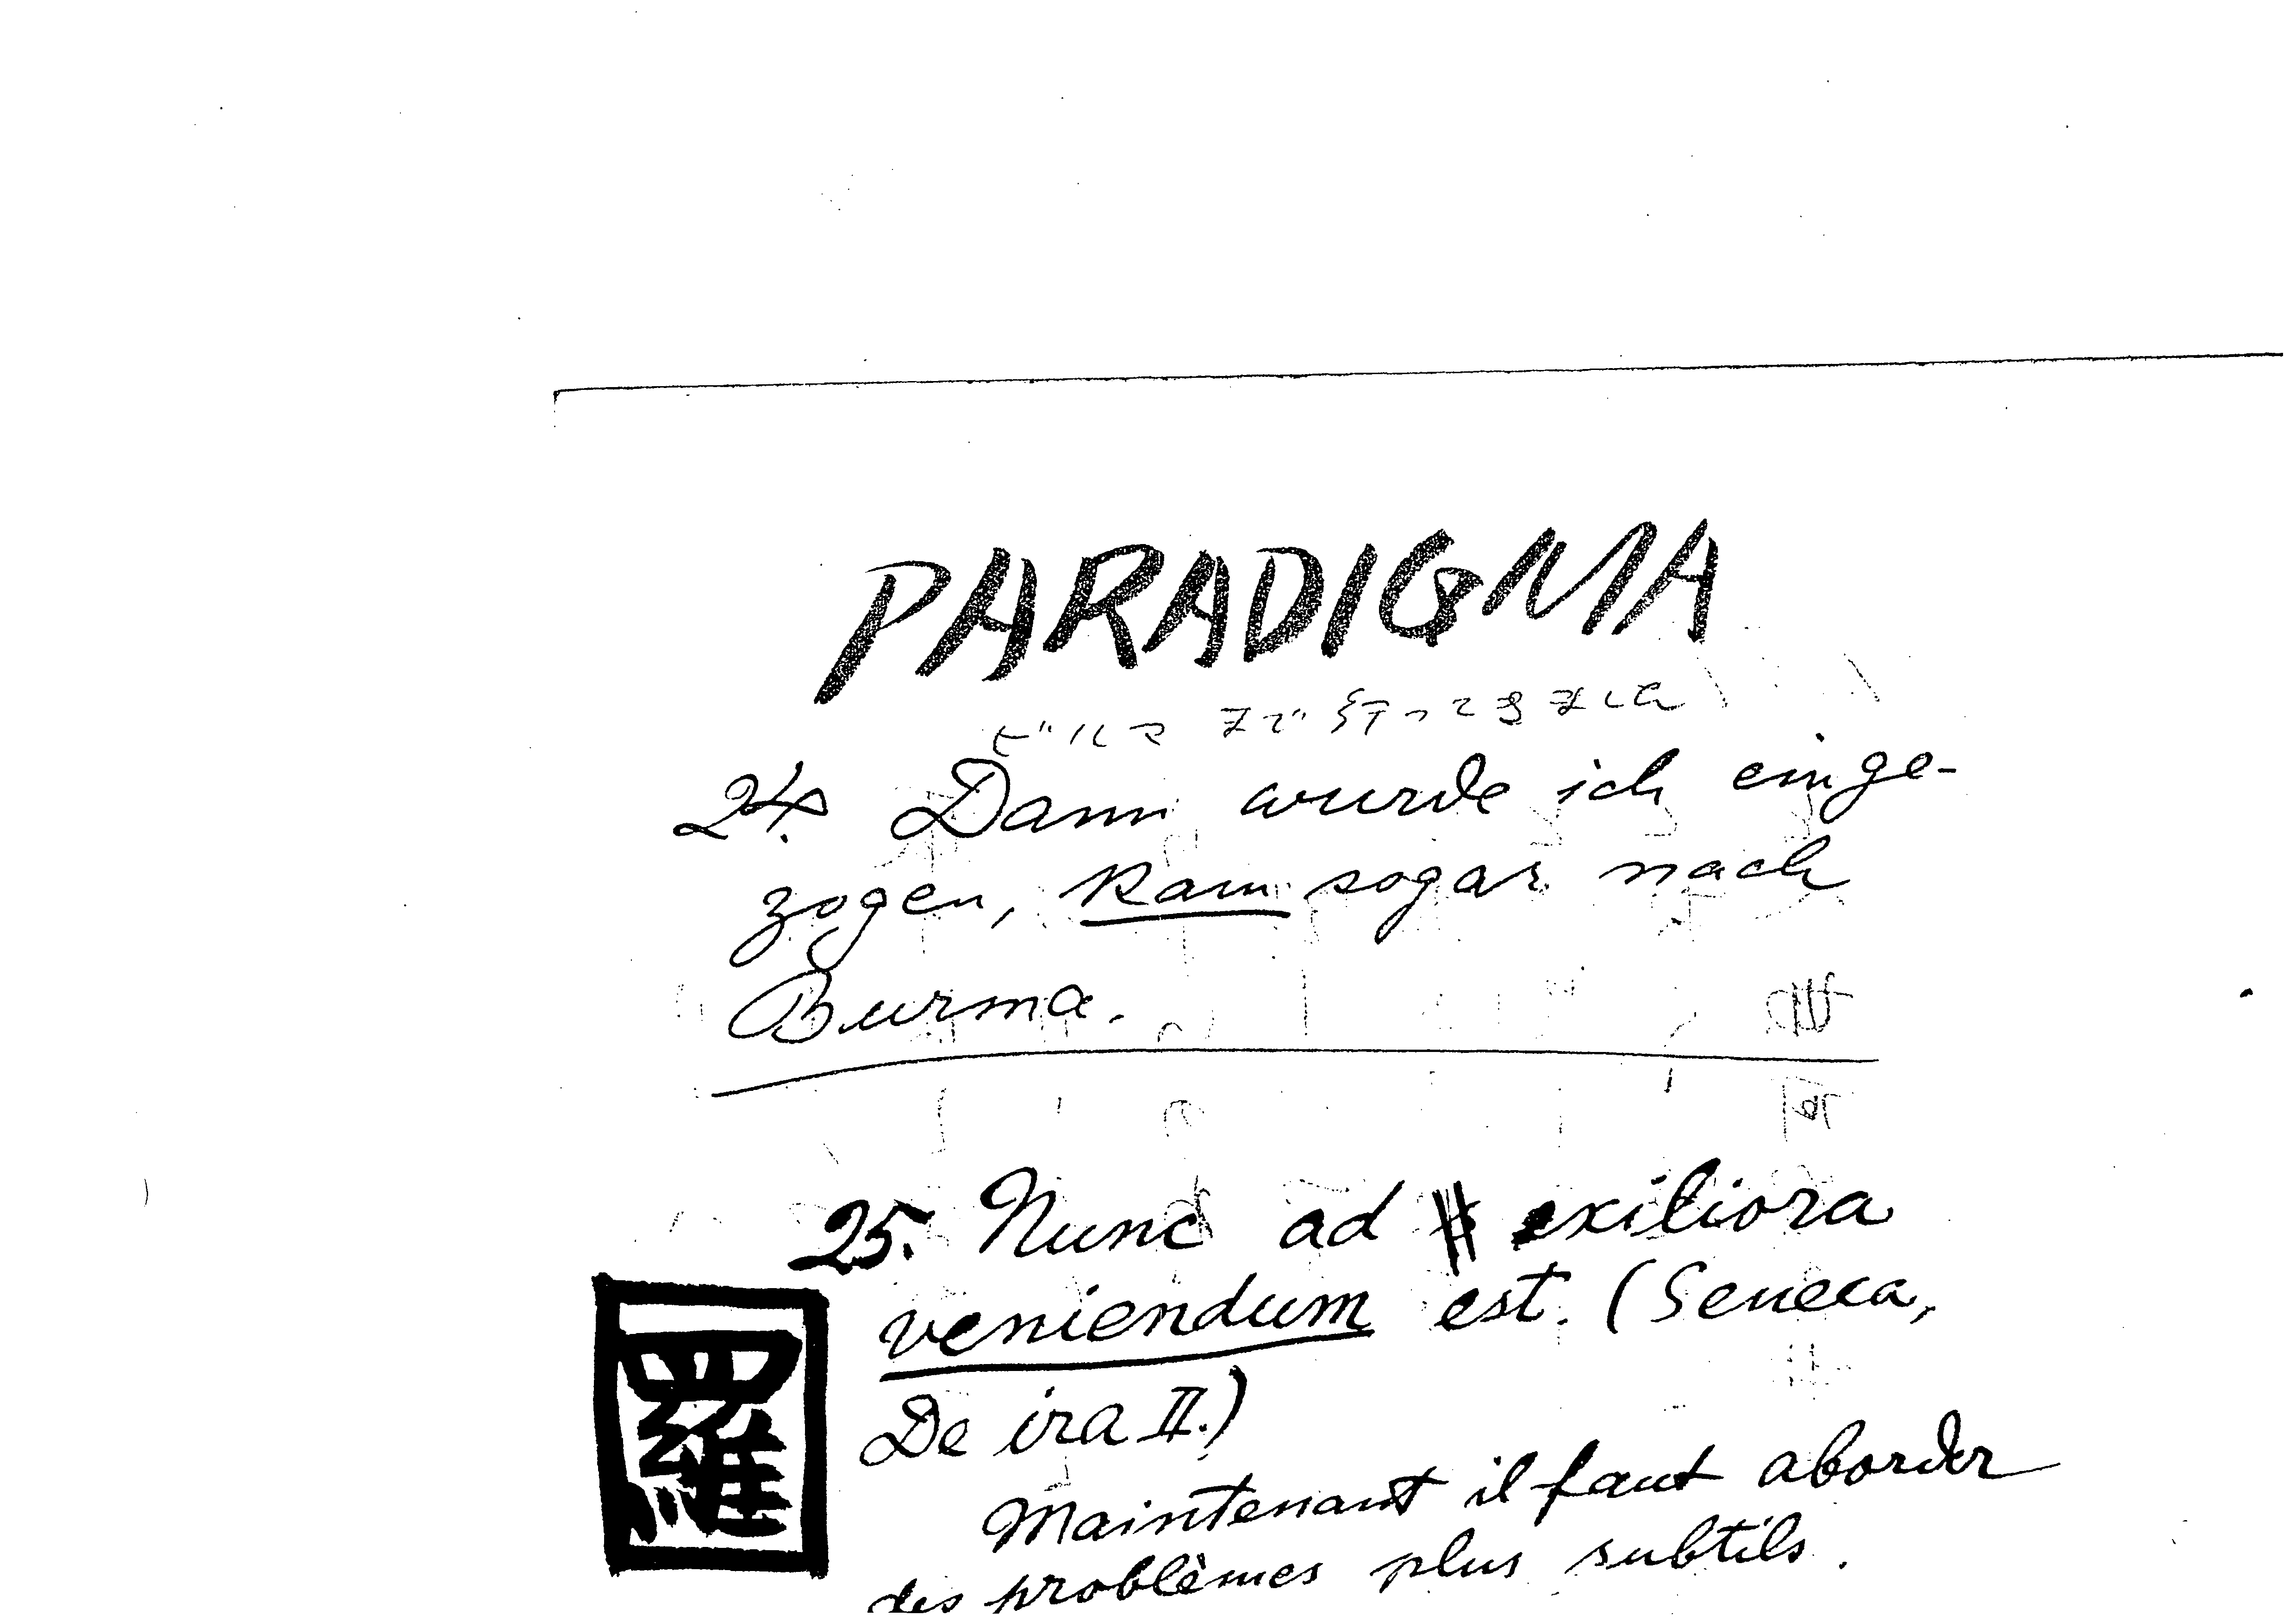 PARADIGMA
ビルマまで行って来ました
24. Dann wurde ich einge-
zogen, kam sogar nach
Burma.
25. Nunc ad exiliora
veniendum est. (Seneca,
De ira II.)
羅
Maintenant il faut aborder
des problèmes plus subtils.